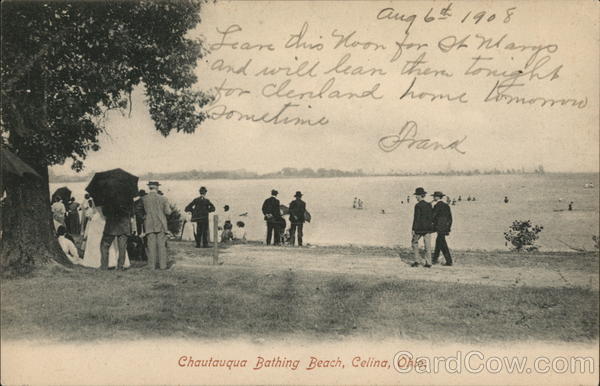 Aug 6th 1908
Leave this Noon for St Marys
and will lean there tonight
for Clenland home tomorrow
sometime
Frand
Chautauqua Bathing Beach, Celina, Ohio.
CardCow.com